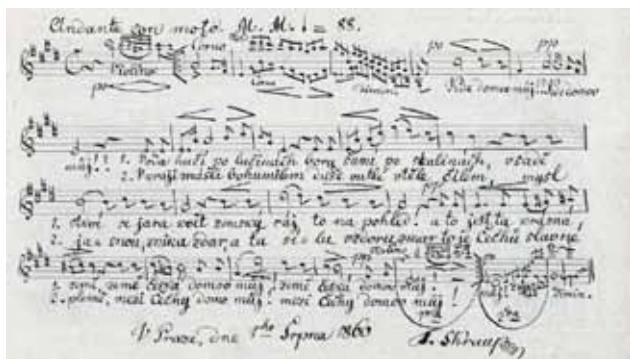 Andante con moto. M. M. ♩ = 88.
Violino Corno po pp
dimin. Kde domov můj! Kde domov
můj!! 1. Voda hučí po lučinách bory šumí po skalinách, v sadě
2. V kraji znáš-li bohumilém duše outlé v těle čilém, mysl
1. skví se jara květ zemský ráj to na pohled! a to jest ta krásná,
2. jasnou, vznik a zdar, a tu sílu vzdoru zmar to je Čechů slavné
1. země, země česká domov můj, země česká domov můj!
2. plémě, mezi Čechy domov můj! mezi Čechy domov můj! dimin.
V Praze, dne 1ho Srpna 1860 F. Skraup